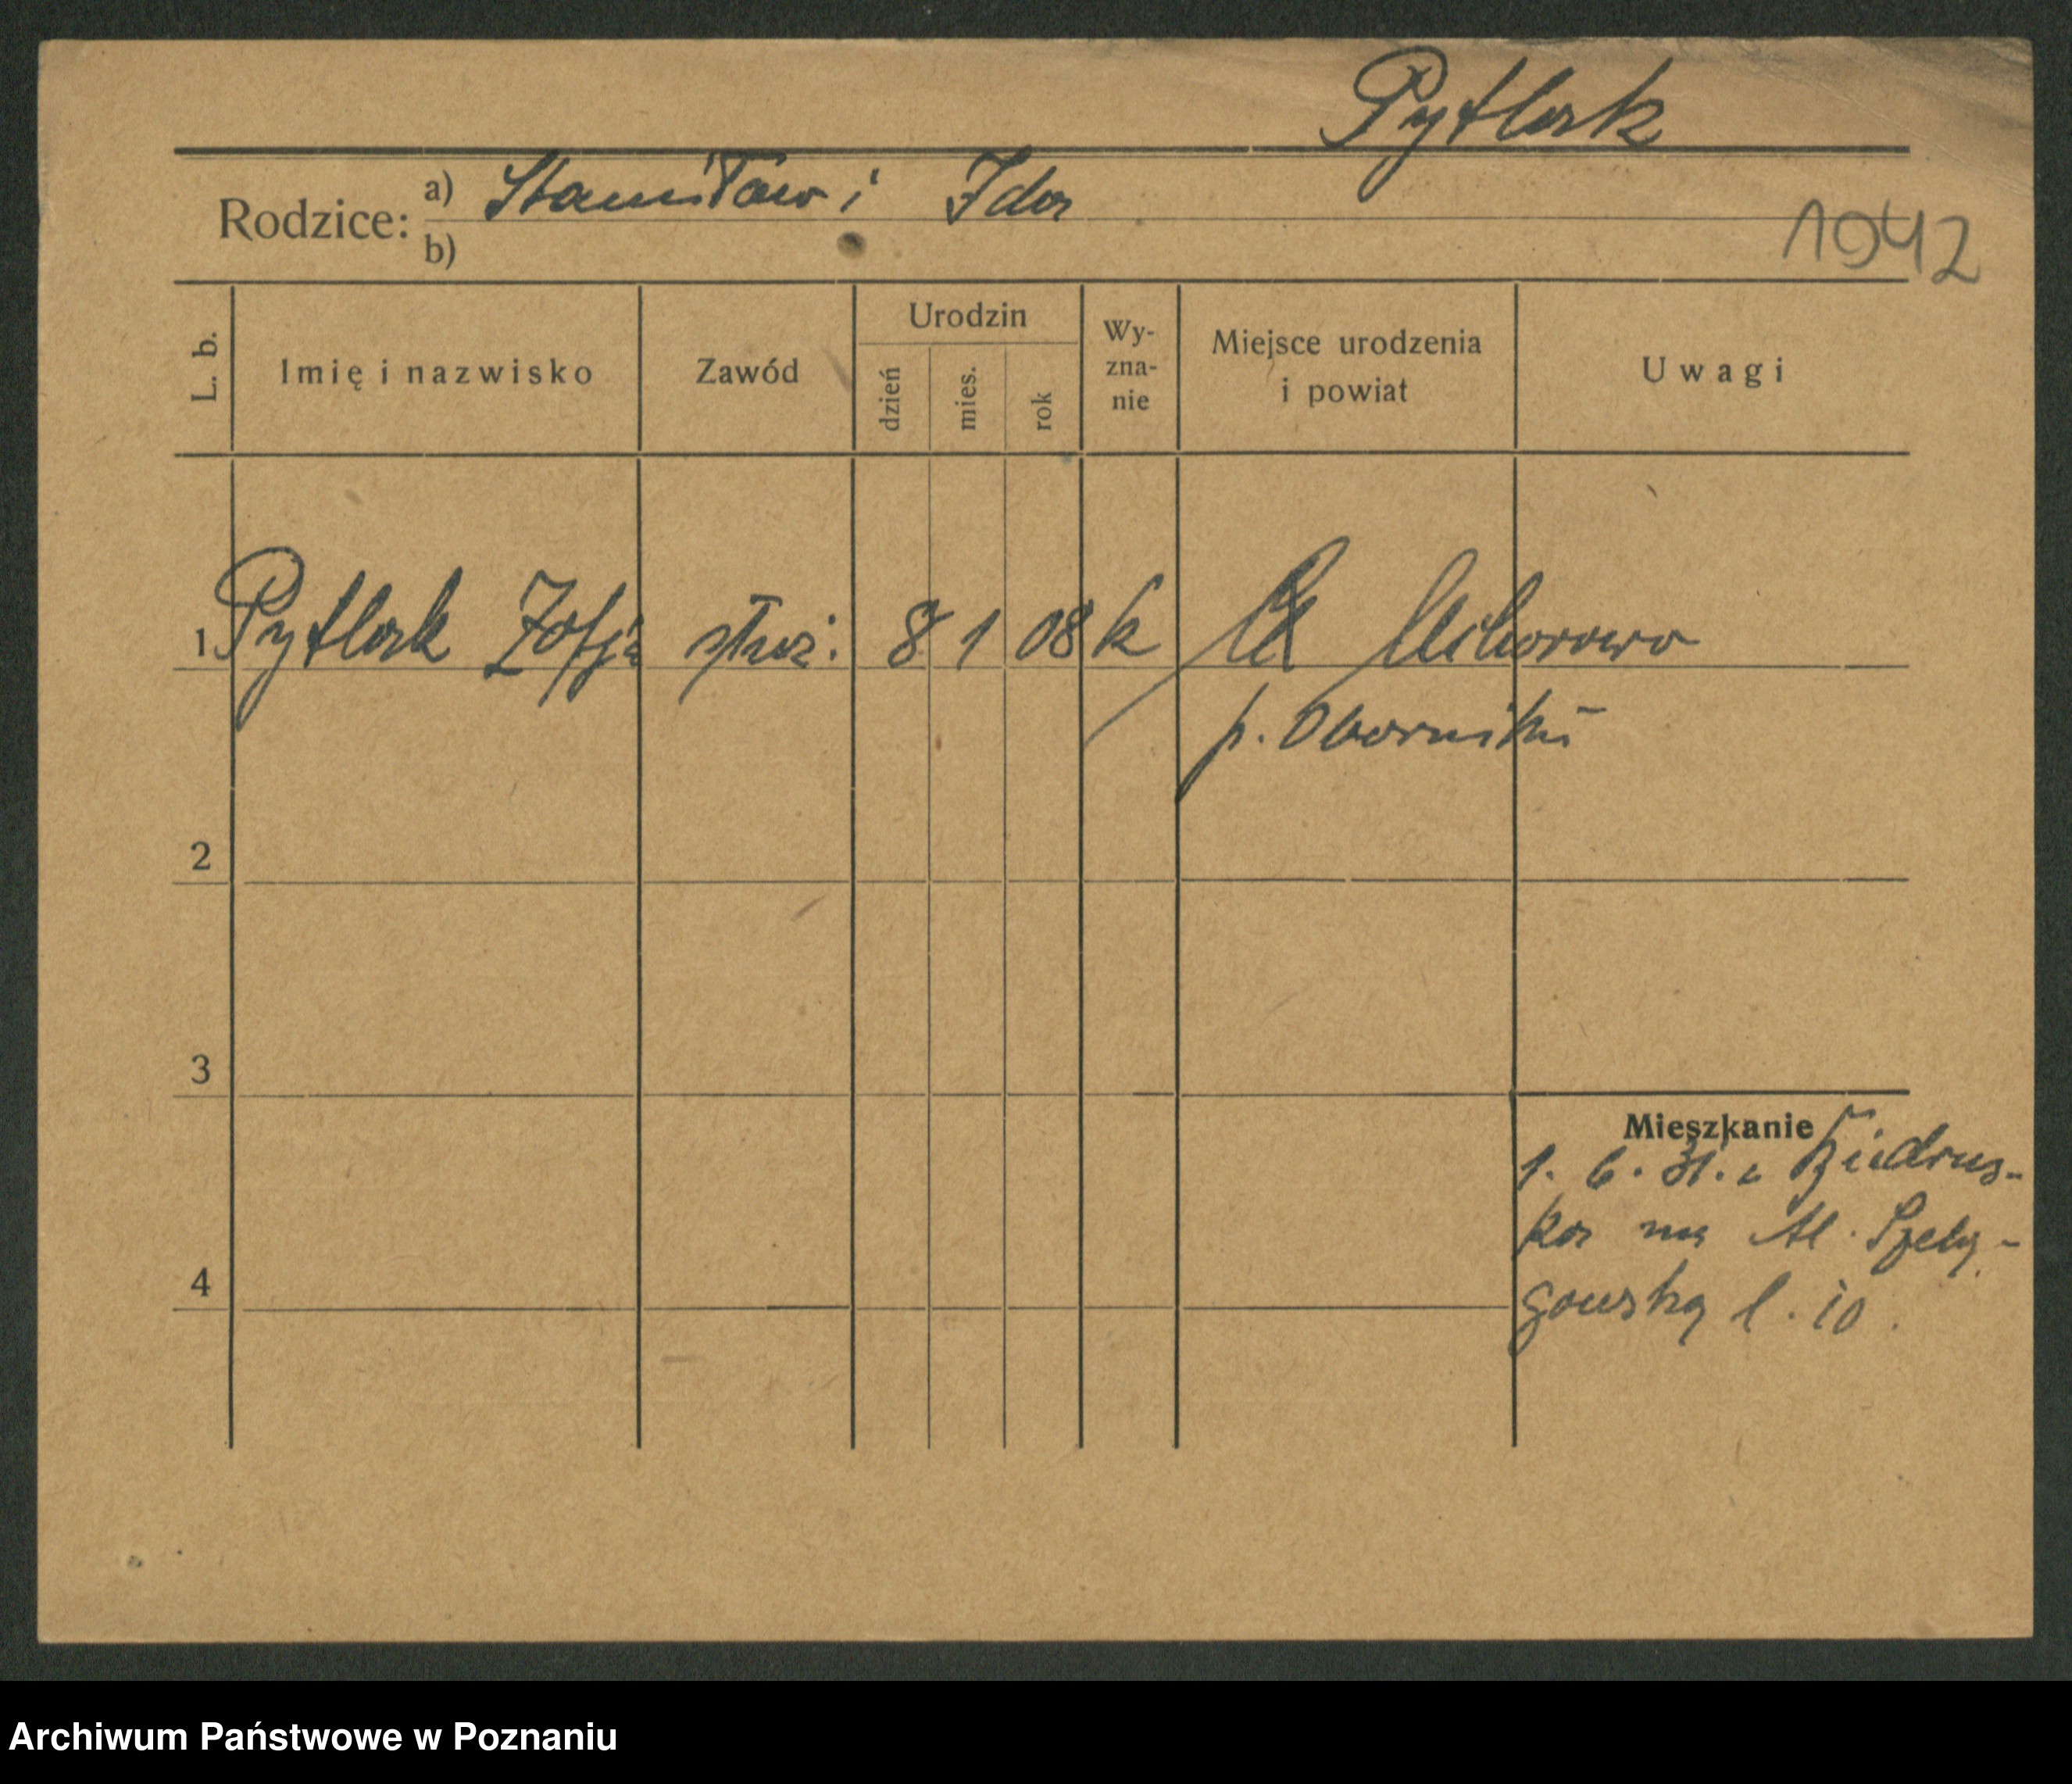 Pytlak
Rodzice: a) Stanisław i Ida
b)
1942
L. b.
Imię i nazwisko
Zawód
Urodzin
dzień
mies.
rok
Wy-
zna-
nie
Miejsce urodzenia
i powiat
Uwagi
1 Pytlak Zofja służ. 8 1 08 k
p. Oborniki
2
3
4
Mieszkanie
1. 6. 31. z Biedrus-
ka na Al. Szelą-
gowską l. 10.
Archiwum Państwowe w Poznaniu